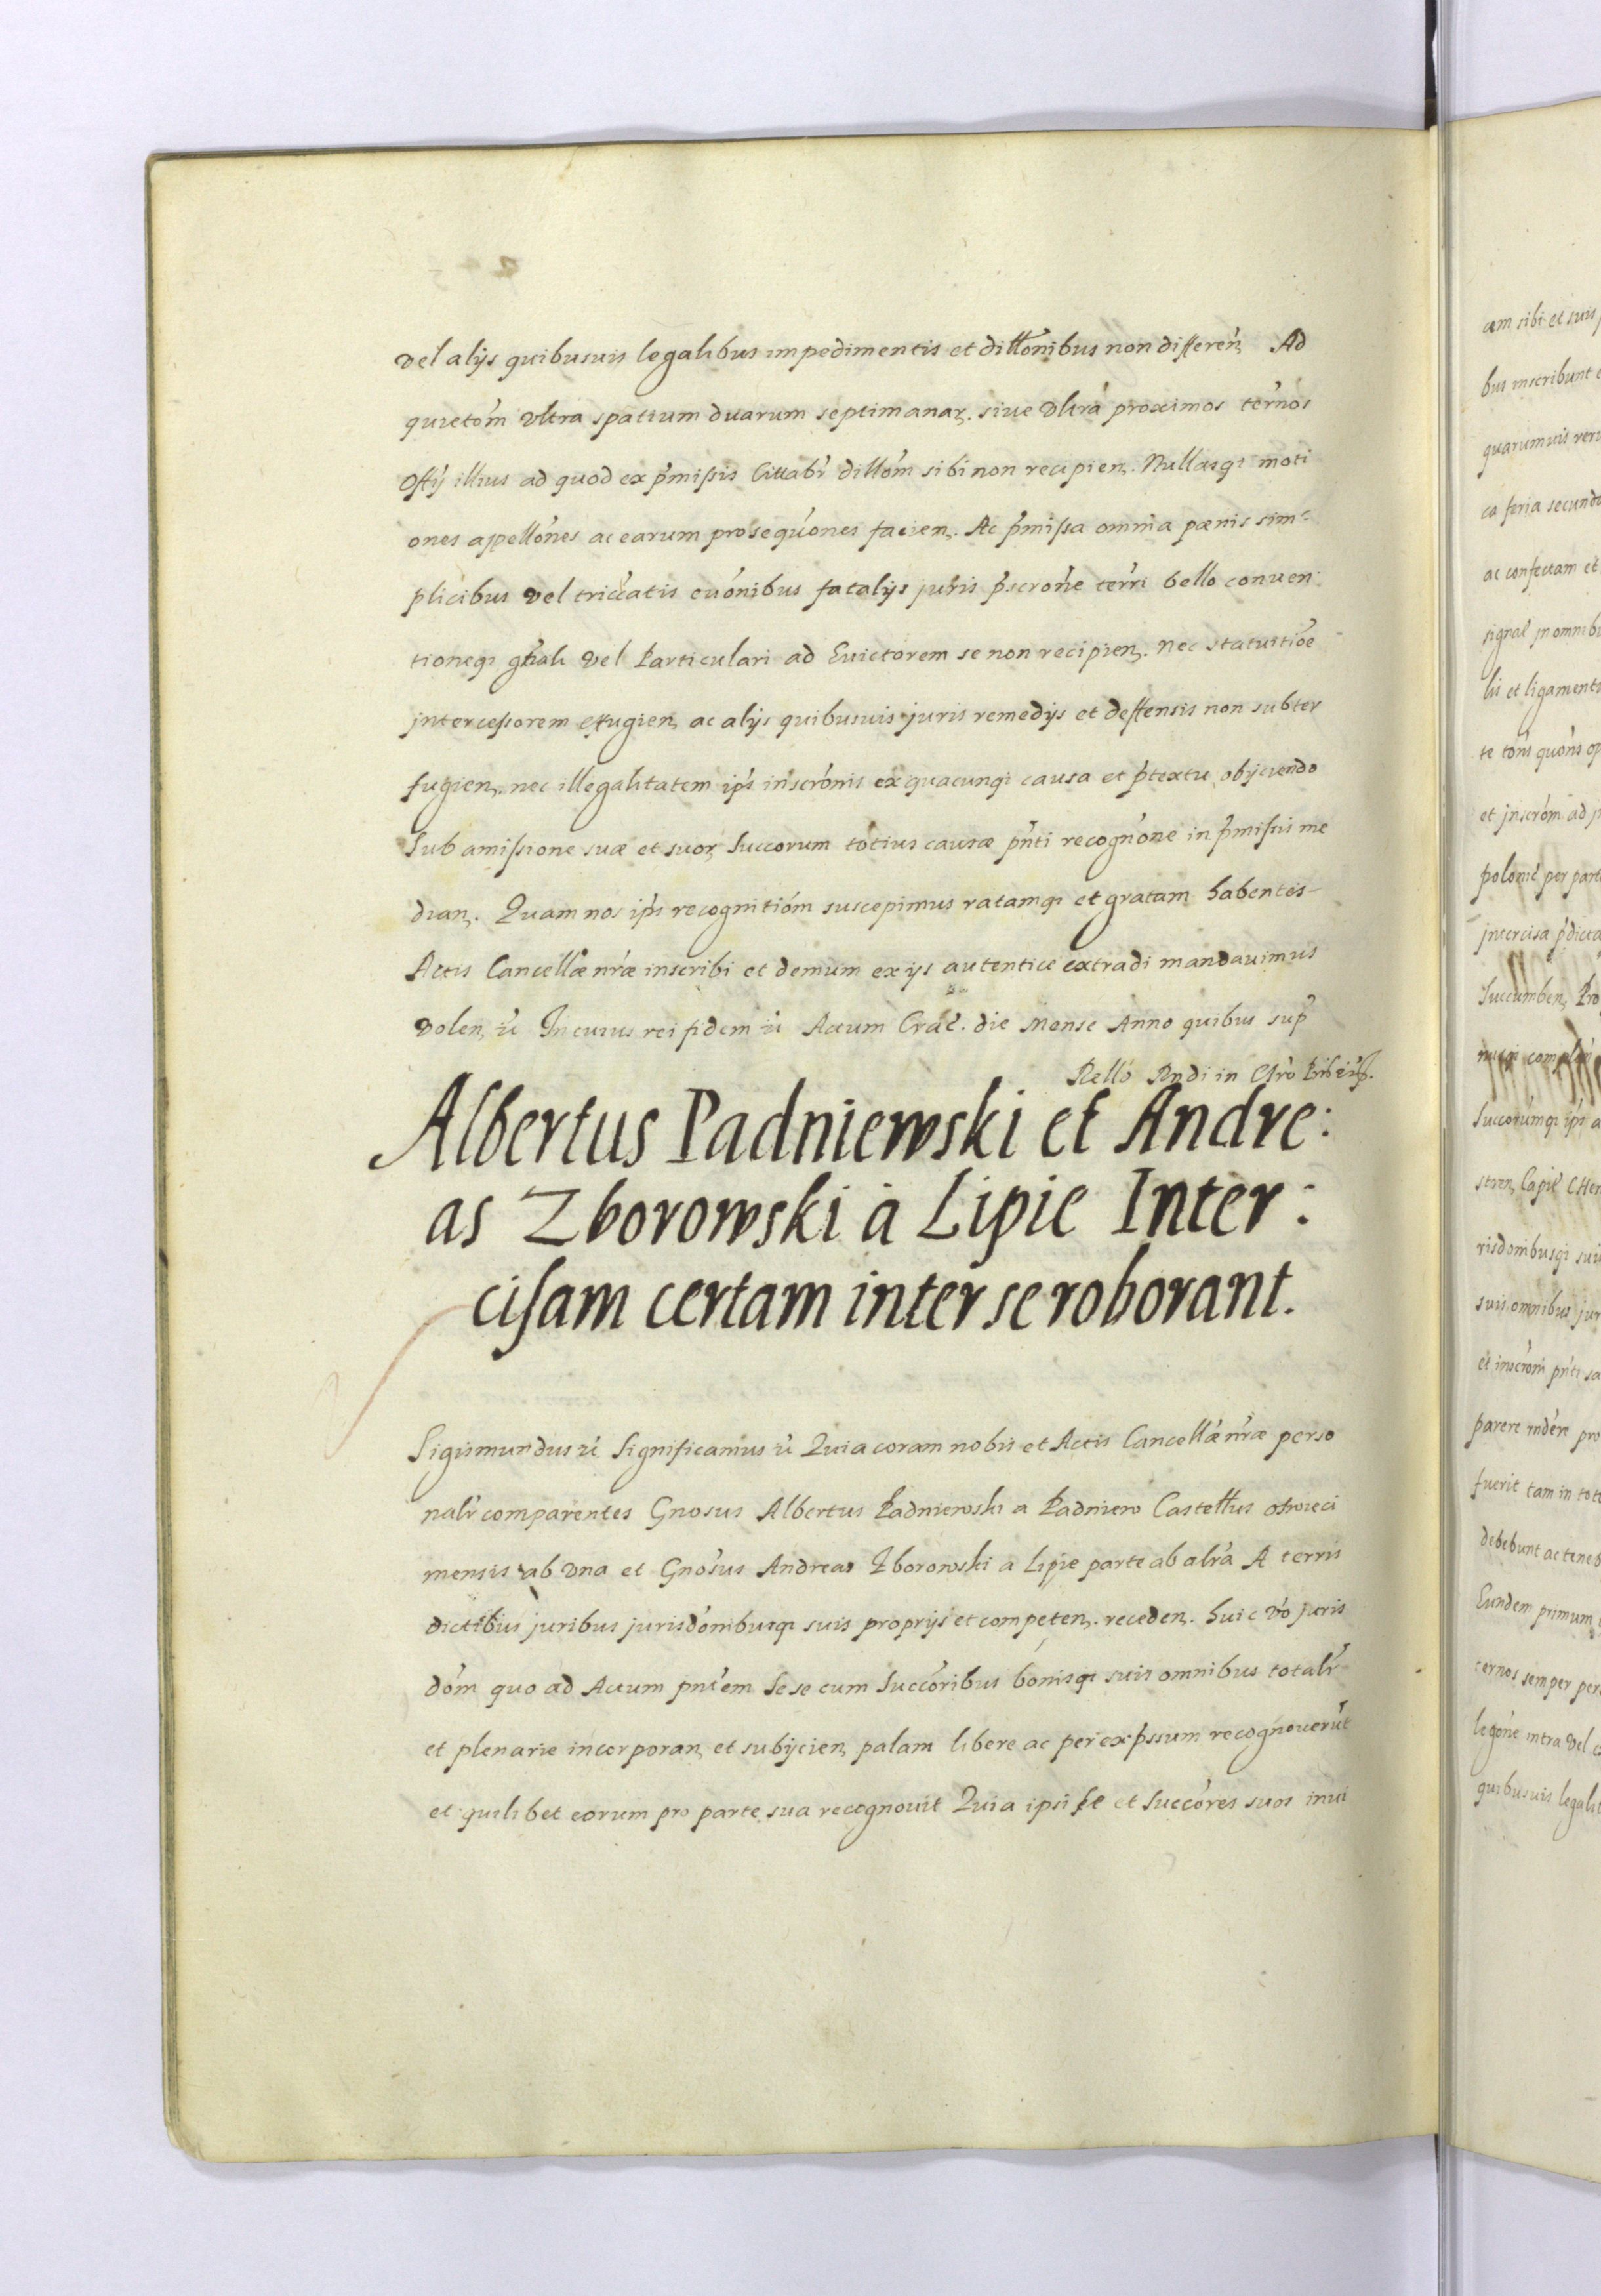 vel alijs quibusuis legalibus impedimentis et dillōnibus non differen. Ad
quietom̄ vltra spatium duarum septimanar. siue vltra proximos ternos
Offij illius ad quod ex p̄missis Cittabr dillom̄ sibi non recipien. Nullasqȝ moti
ones apellōnes ac earum prosequōnes facien. Ac p̄missa omnia pœnis sim
plicibus vel triccatis euōnibus fatalijs juris p̄scrōne terri bello conuen
tioneqȝ gn̄ali vel Particulari ad Euictorem se non recipien. nec statuitiōe
intercessorem effugien, ac alijs quibusuis juris remedijs et deffensis non subter
fugien. nec illegalitatem ip̄s inscrōnis ex quacunqȝ causa et p̄textu obijciendo
Sub amissione suæ et suor, Succorum totius causæ pn̄ti recognōne in p̄missis me
dian. Quam nos ip̄i recognitiom̄ suscepimus ratamqȝ et gratam habentes
Actis Cancellæ nr̄æ inscribi et demum ex ijs autentice extradi mandauimus
volen, ec̄ In cuius rei fidem ec̄ Actum Crac̄. die Mense Anno quibus sup̄
Rello Rndi in Chr̄o
Albertus Padniewski et Andre:
as Zborowski à Lipie Inter:
cisam certam inter se roborant.
Sigismundus ec̄ Significamus ec̄ Quia coram nobis et Actis Cancellæ nr̄æ perso
nalr̄ comparentes Gnosus Albertus Padniewski a Padniew Castellus oswieci
mensis ab vna et Gnosus Andreas Zborowski a Lipie parte ab altra A terris
dictibus juribus jurisdōnibusqȝ suis proprijs et competen. receden. huic vr̄o juris
dōm quo ad Actum pn̄tem Sese cum Succōribus bonisqȝ suis omnibus totalr̄
et plenarie incorporan, et subijcien, palam libere ac per exp̄ssum recognouerūt
et quilibet eorum pro parte sua recognouit Quia ipsi se et Succōres suos inui
cam sibi et suis
bus inscribunt
quarumuis
ca feria secunda
ac confectam et
signat in omnibu
lis et ligament
te
et inscrom̄ ad
polonic̄ per part
intercisa p̄dicta
Succumben, Pro
Succorumqȝ ip̄i a
suis omnibus jur
et inscrom̄ pn̄ti sa
parere pro
fuerit tam in tot
debebunt ac teneb
Eundem primum
ternos semper per
legōne intra vel
quibusuis legali